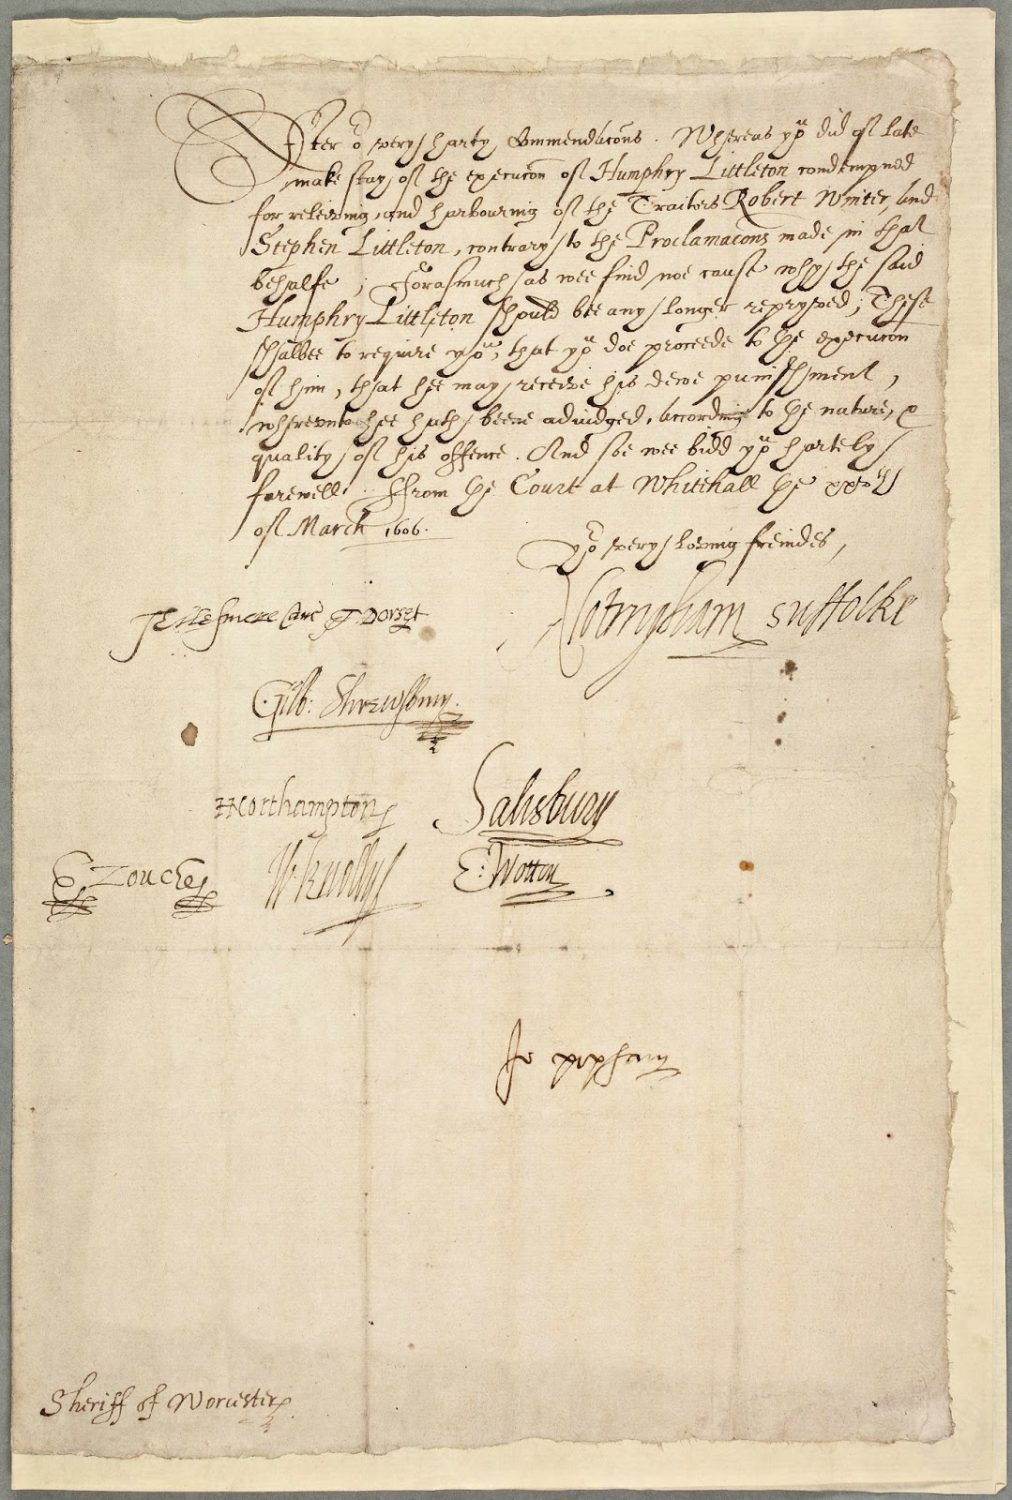 After o:r very harty Commendacons. Whereas yo:u did of late
make stay of the execucon of Humphry Littleton condempned
for releiving, and harbouring of the Traitors Robert Winter, and
Stephen Littleton, contrary to the Proclamacons made in that
behalfe; Forasmuch as wee find noe cause why the said
Humphry Littleton should bee any longer repryved; These
shalbee to require yo:u, that yo:u doe proceede to the execucon
of him, that hee may receive his dewe punishment,
wherevnto hee hath beene adiudged, according to the nature, &
quality of his offence. And soe wee bidd yo:u hartely
farewell. ffrom the Court at Whitehall the
of March 1606.
Yo:r very loving freindes,
T Ellesmere Canc T Dorset
Notingham Suffolke
Gilb: Shrewsbury.
HNorthampton
Salisbury
E Zouche
W Knollys
E: Wotton
Jo Popham
Sheriff of Worcester.